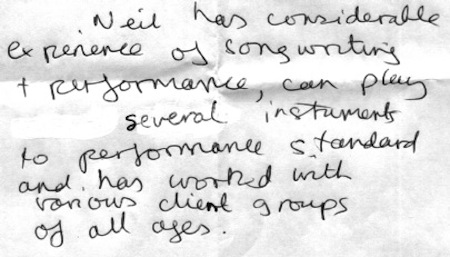 Neil has considerable
experience of songwriting
+ performance, can play
several instuments
to performance standard
and has worked with
various client groups
of all ages.